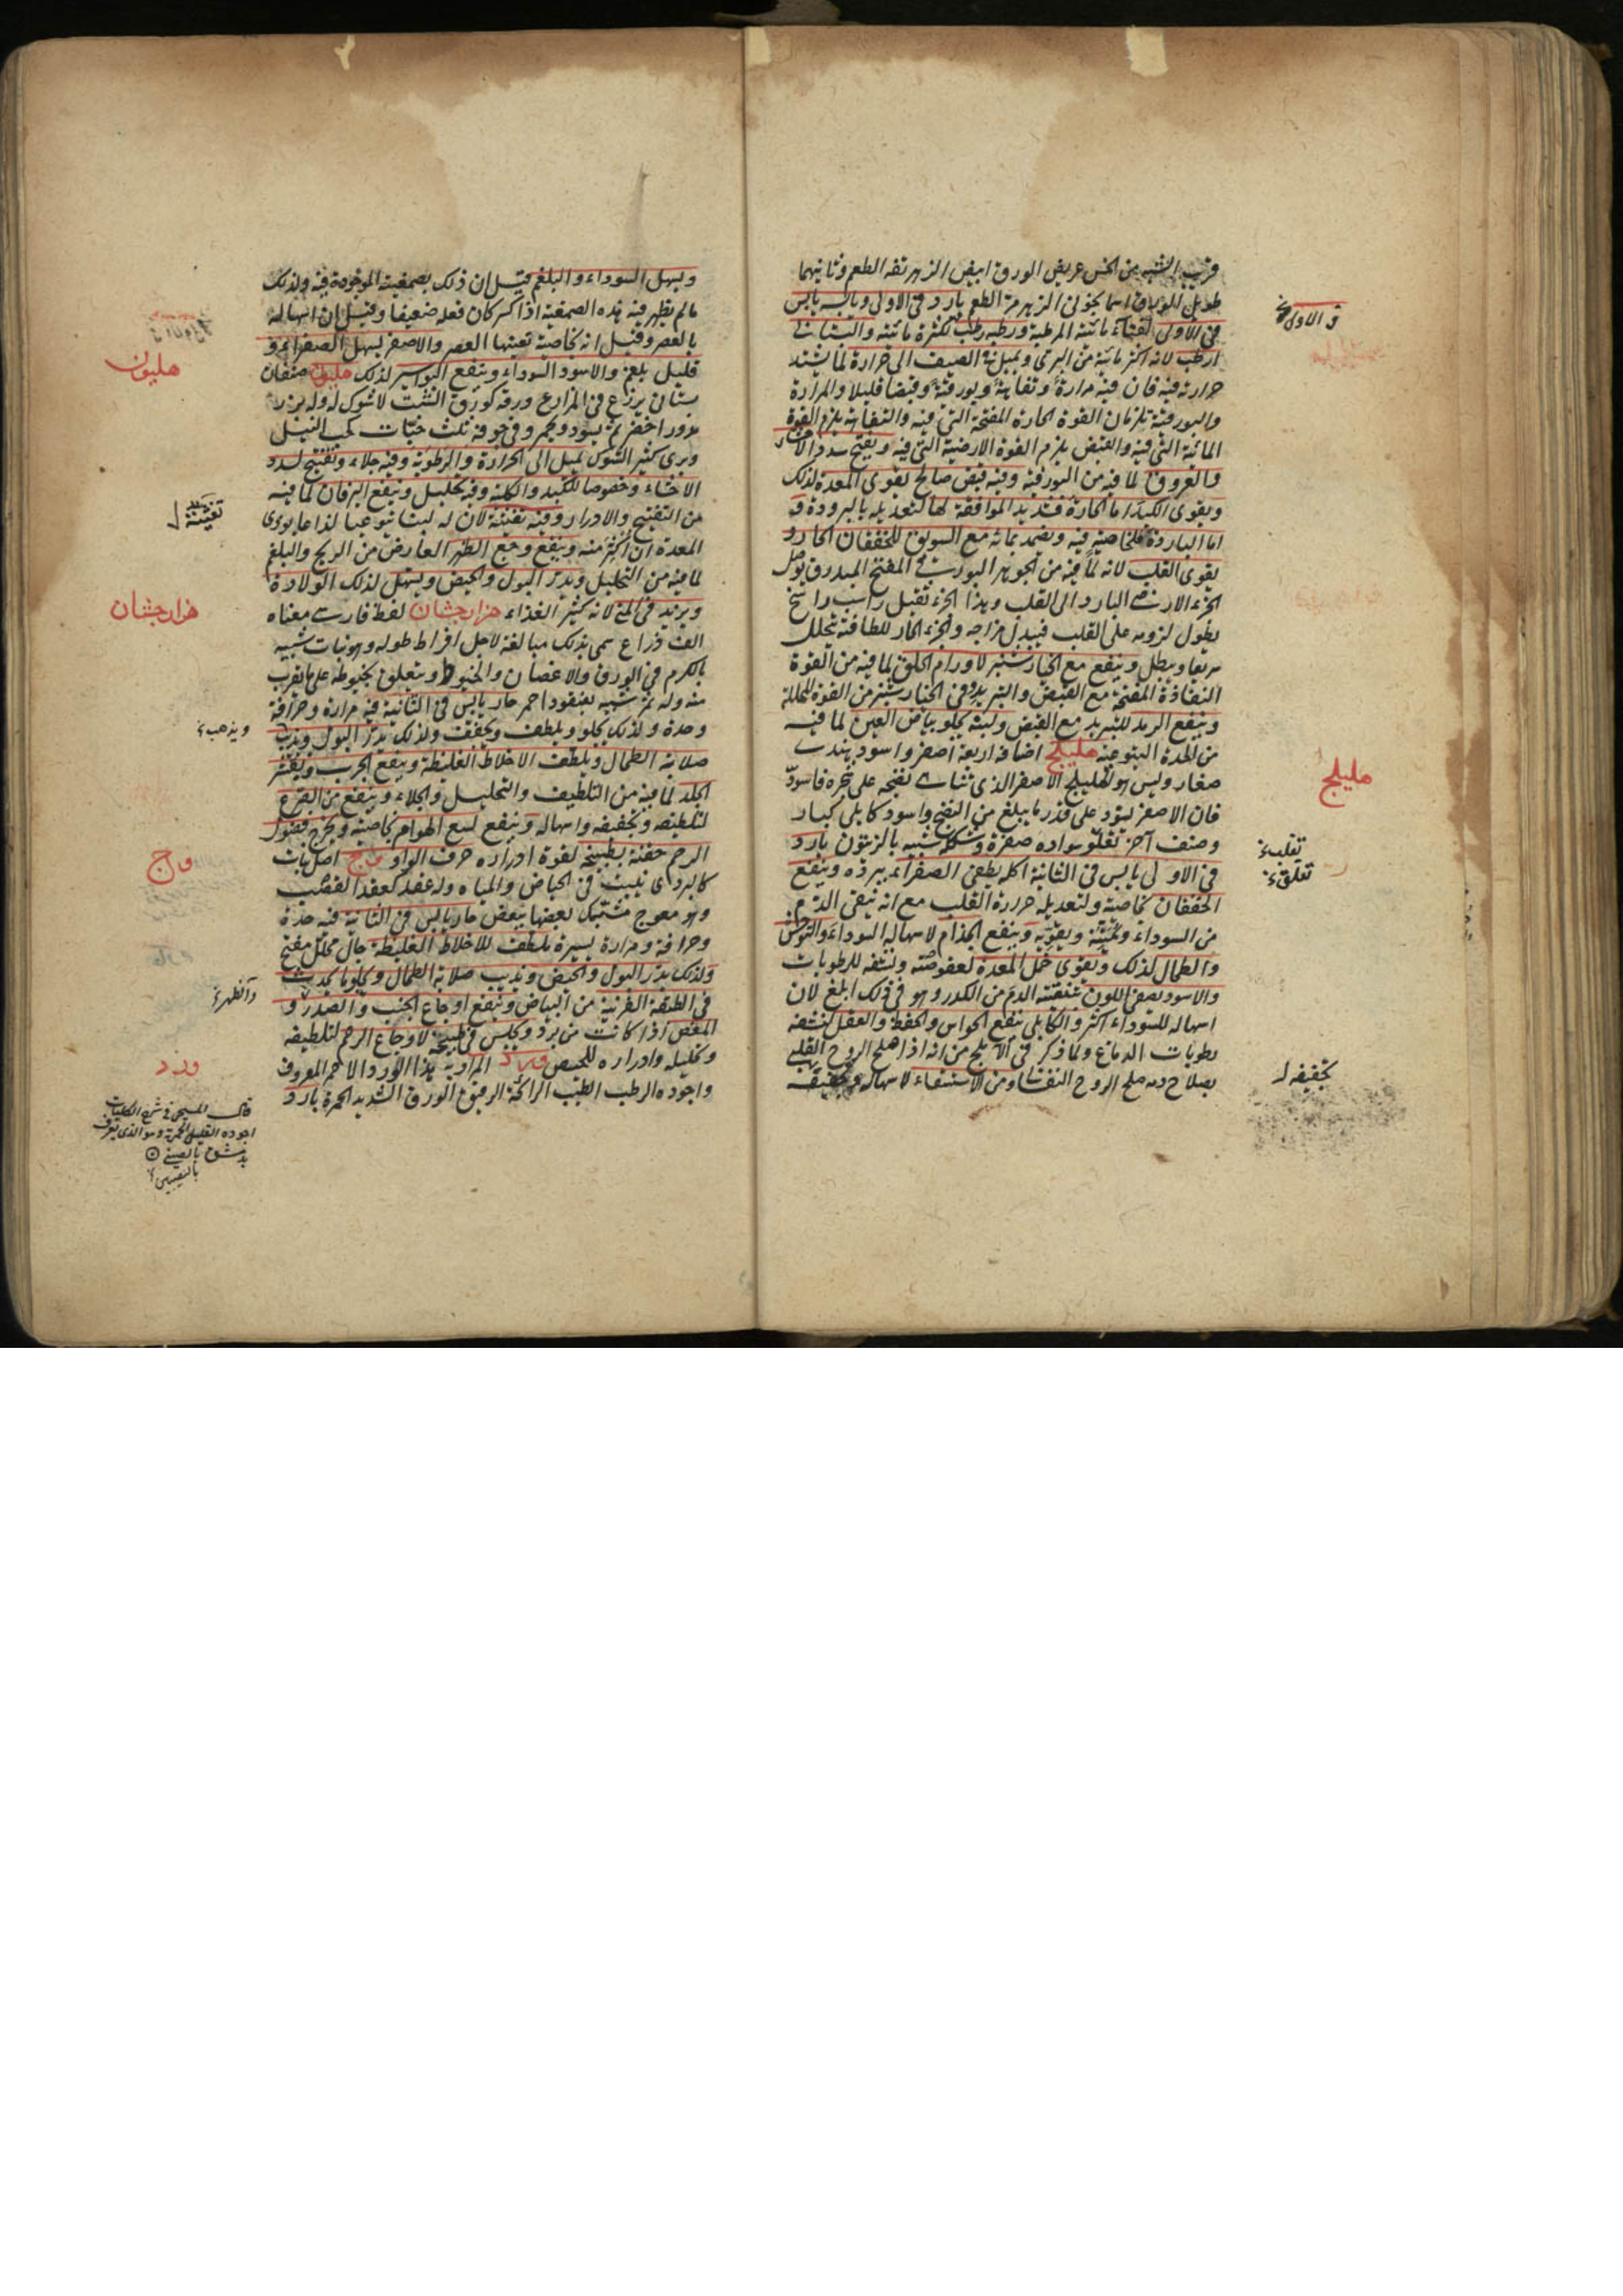 قريب الشبه من الخس عريض الورق ابيض الزهر تفه الطعم وثانيهما
طويل الورق اسمانجوني الزهر مر الطعم بارد في الاولى ويابسه يابس
في الاولى
في الاولى لفناء مائيته المرطبة ورطبه رطب لكثرة مائيته والبستاني
ارطب لانه اكثر مائية من البري ويميل في الصيف الى حرارة لما يشتد
حرارته فيه فان فيه مرارة وتفاهة وبورقية وقبضا قليلا والمرارة
والبورقية يلزمان القوة الحارة المفتحة التي فيه والتفاهة يلزم القوة
المائية التي فيه والقبض يلزم القوة الارضية التي فيه ويفتح سدد الاحشاء
والعروق لما فيه من البورقية وفيه قبض صالح يقوى المعدة لذلك
ويقوى الكبد اما الحارة فشديد الموافقة لها لتعديله بالبرودة و
اما الباردة فلخاصية فيه ويضمد بمائه مع السويق للخفقان الحار و
يقوى القلب لانه لما فيه من الجوهر البورقي المفتح المبدرق يوصل
الجزء الارضي البارد الى القلب وهذا الجزء ثقيل راسب راسخ
يطول لزومه على القلب فيبدل مزاجه والجزء الحار للطافته يتحلل
سريعا ويبطل وينفع مع الخيارشنبر لاورام الحلق لما فيه من القوة
النفاذة المفتحة مع القبض والتبريد وفي الخيارشنبر من القوة المحللة
وينفع الرمد للتبريد مع القبض ولبنه يجلو بياض العين لما فيه
من الحدة اليتوعية هليلج اصنافه اربعة اصفر واسود هندي
هليلج
صغار وليس هو الهليلج الاصفر الذي تناهى نضجه على شجره فاسود
فان الاصفر يسود على قدر ما يبلغ من النضج واسود كابلي كبار
وصنف آخر تعلو سواده صفرة وشكله شبيه بالزيتون بارد
في الاولى يابس في الثانية اكله يطفي الصفراء ببرده وينفع
الخفقان بخاصية ولتعديله حرارة القلب مع انه ينقى الدم
من السوداء ويمتنه ويقويه وينفع الجذام لاسهاله السوداء والتوحش
والطحال لذلك ويقوى خمل المعدة لعفوصته ونشفه للرطوبات
والاسود يصفى اللون بتنقيته الدم من الكدر وهو في ذلك ابلغ لان
اسهاله للسوداء اكثر والكابلي ينفع الحواس والحفظ والعقل لنشفه
رطوبات الدماغ ولما ذكر في الاملج من انه اذا اصلح الروح القلبي
بصلاح دمه صلح الروح النفساني ومن الاستسقاء لاسهاله وتجفيفه
تجفيفه
ويسهل السوداء والبلغم قيل ان ذلك بصمغية الموجودة فيه ولذلك
ما لم يظهر فيه هذه الصمغية اذا كسر كان فعله ضعيفا وقيل ان اسهاله
بالعصر وقيل انه بخاصية تعينها العصر والاصفر يسهل الصفراء و
قليل بلغم والاسود السوداء وينفع البواسير لذلك هليون صنفان
هليون
بستاني يزرع في المزارع ورقه كورق الشبت لا شوك له وله بزر
مدور اخضر ثم يسود ويحمر وفي جوفه ثلث حبات كحب النيل
وبري كثير الشوك يميل الى الحرارة والرطوبة وفيه جلاء وتفتيح لسدد
الاحشاء وخصوصا للكبد والكلية وفيه تحليل وينفع اليرقان لما فيه
من التفتيح والادرار وفيه تغثية لان له لبنا يتوعيا لذاعا يوذى
تغثية
المعدة ان اكثر منه وينفع وجع الظهر العارض من الريح والبلغم
لما فيه من التحليل ويدر البول والحيض ويسهل لذلك الولادة
ويزيد في المني لانه كثير الغذاء هزارجشان لفظ فارسي معناه
هزارجشان
الف ذراع سمي بذلك مبالغة لاجل افراط طوله وهو نبات شبيه
بالكرم في الورق والاغصان والخيوط ويتعلق بخيوطه على ما يقرب
منه وله ثمر شبيه بعنقود احمر حار يابس في الثانية فيه مرارة وحرافة
وحدة ولذلك يجلو ويلطف ويجفف ولذلك يدر البول ويذيب
ويذهب
صلابة الطحال ويلطف الاخلاط الغليظة وينفع الجرب ويقشر
الجلد لما فيه من التلطيف والتحليل والجلاء وينفع من الصرع
لتلطيفه وتجفيفه واسهاله وينفع لسع الهوام بخاصية ويخرج فضول
الرحم حقنة بطبيخه لقوة ادراره حرف الواو وج اصل نبات
وج
كالبردي ينبت في الحياض والمياه وله عقد كعقد القصب
وهو معوج مشتبك بعضها ببعض حار يابس في الثانية فيه حدة
وحرافة ومرارة يسيرة ملطف للاخلاط الغليظة جال محلل مفتح
ولذلك يدر البول والحيض ويذيب صلابة الطحال ويجلو ما يحدث
في الطبقة القرنية من البياض وينفع اوجاع الجنب والصدر و
والظهر
المغص اذا كانت من برد ويجلس في طبيخه لاوجاع الرحم لتلطيفه
وتحليله وادراره للحيض ورد المراد به هذا الورد الاحمر المعروف
ورد
واجوده الرطب الطيب الرائحة الرقيق الورق الشديد الحمرة بارد
قال المسيحي في شرح الكليات
اجوده القليل الحمرة وهو الذي يعرف
بدمشق